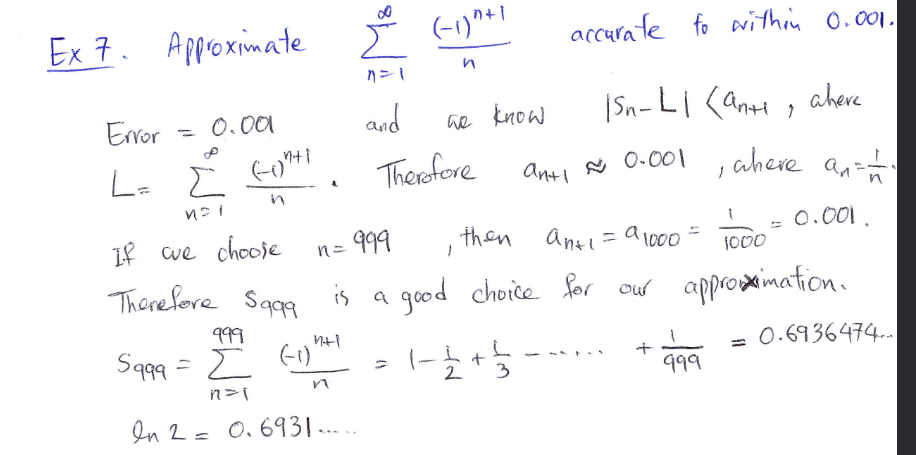 Ex 7. Approximate ∞ Σ n=1 (-1)^{n+1} / n accurate to within 0.001.
Error = 0.001 and we know |Sn - L| < a_{n+1} , where
L = ∞ Σ n=1 (-1)^{n+1} / n . Therefore a_{n+1} ≈ 0.001 , where a_n = 1/n .
If we choose n = 999 , then a_{n+1} = a_{1000} = 1/1000 = 0.001 .
Therefore S_{999} is a good choice for our approximation.
S_{999} = 999 Σ n=1 (-1)^{n+1} / n = 1 - 1/2 + 1/3 - ...... + 1/999 = 0.6936474...
ln 2 = 0.6931......